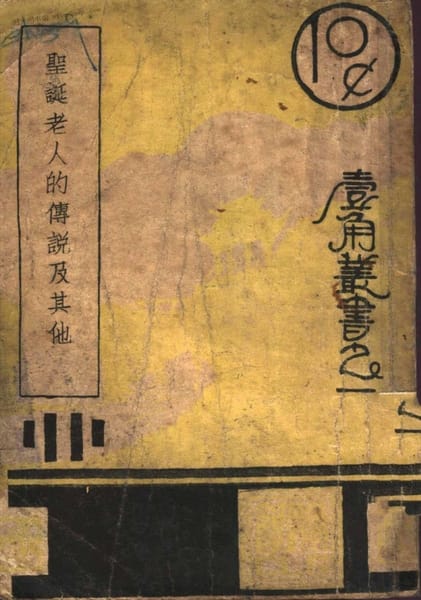 10¢
壹角叢書之一
聖誕老人的傳說及其他